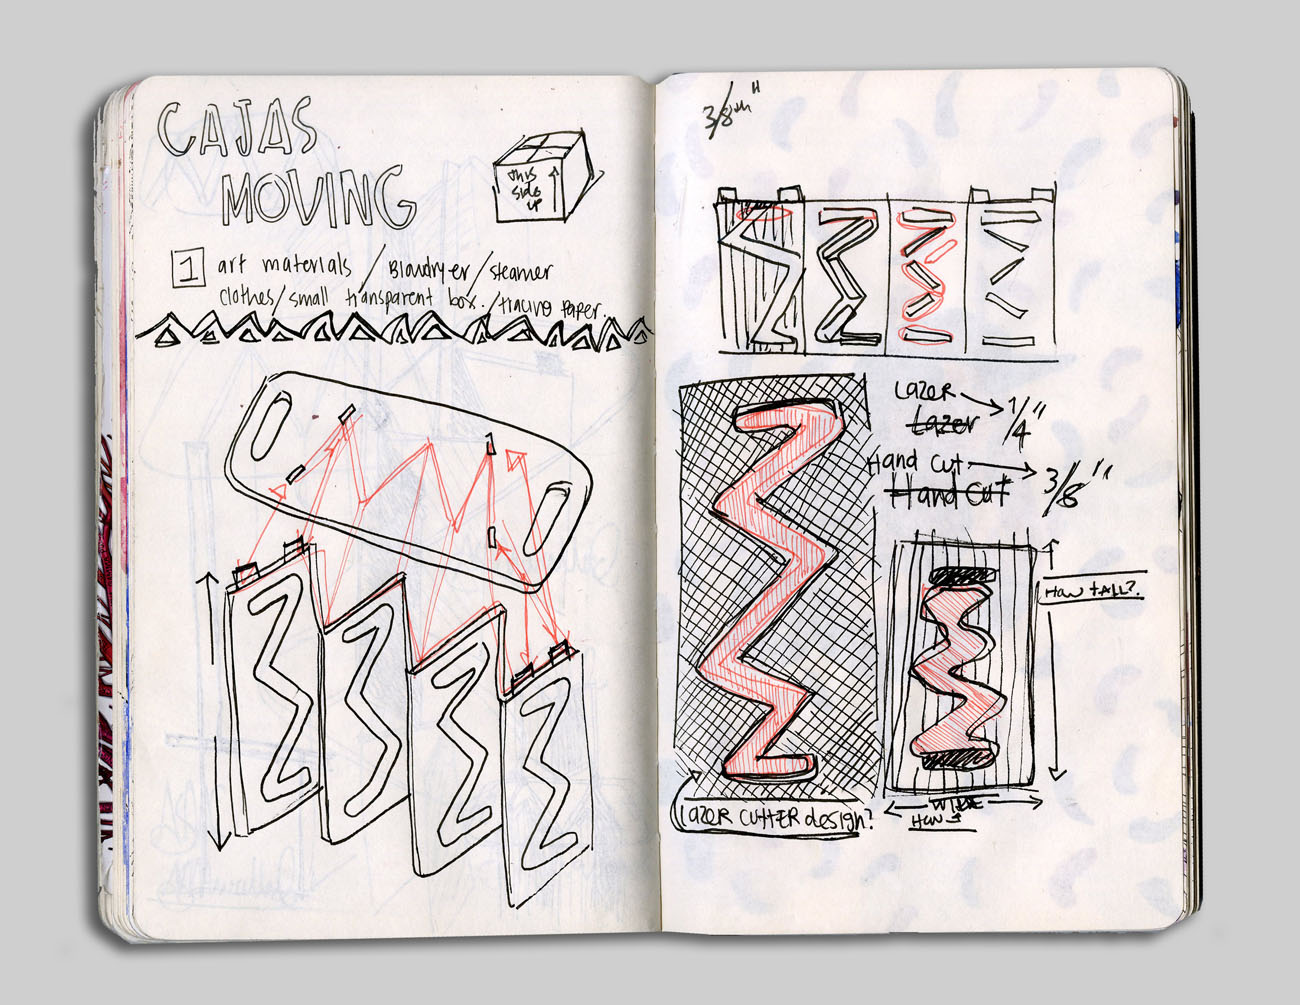 CAJAS
MOVING
This
side
up
1 art materials / Blowdryer / steamer
clothes / small transparent box. / tracing paper.
3/8th"
Lazer → 1/4"
Lazer
Hand Cut → 3/8"
Hand Cut
How tALL?
WIDE
How
LAZER CUTTER design?